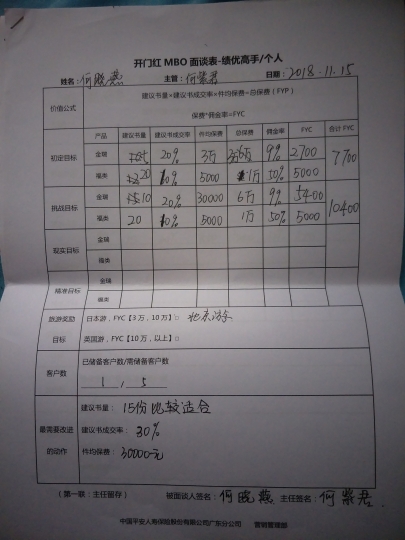 开门红 MBO 面谈表-绩优高手/个人
姓名: 何晓燕 主管: 何紫君 日期: 2018.11.15
价值公式 建议书量×建议书成交率×件均保费=总保费（FYP）
保费*佣金率=FYC
产品 建议书量 建议书成交率 件均保费 总保费 佣金率 FYC 合计 FYC
初定目标 金瑞 5 20% 3万 3万 9% 2700 7700
福类 20 10% 5000 1万 50% 5000
挑战目标 金瑞 10 20% 30000 6万 9% 5400 10400
福类 20 10% 5000 1万 50% 5000
现实目标 金瑞
福类
精准目标 金瑞
福类
旅游奖励 日本游，FYC【3万，10万】□ 北京游
目标 英国游，FYC【10万，以上】□
客户数 已储备客户数/需储备客户数
1 / 5
建议书量: 15份比较适合
最需要改进 建议书成交率: 30%
的动作 件均保费: 30000元
（第一联：主任留存） 被面谈人签名: 何晓燕 主任签名: 何紫君
中国平安人寿保险股份有限公司广东分公司 营销管理部